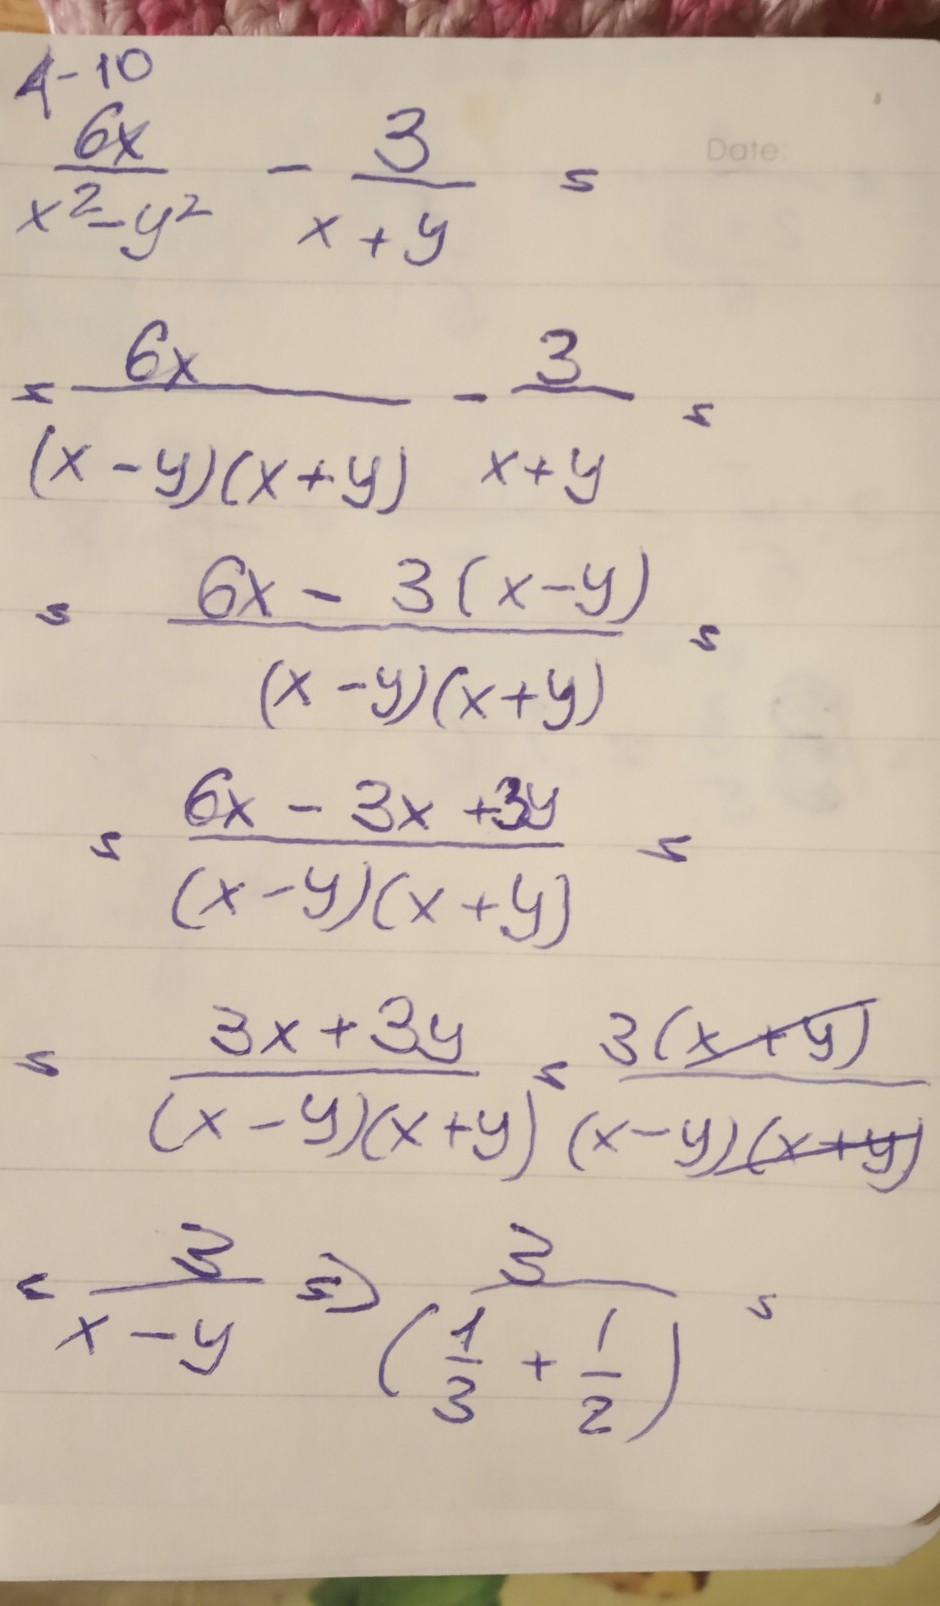 4-10
Date:
6x/(x²-y²) - 3/(x+y) =
= 6x/((x-y)(x+y)) - 3/(x+y) =
= (6x - 3(x-y))/((x-y)(x+y)) =
= (6x - 3x + 3y)/((x-y)(x+y)) =
= (3x+3y)/((x-y)(x+y)) = 3(x+y)/((x-y)(x+y))
= 3/(x-y) => 3/(1/3 + 1/2) =